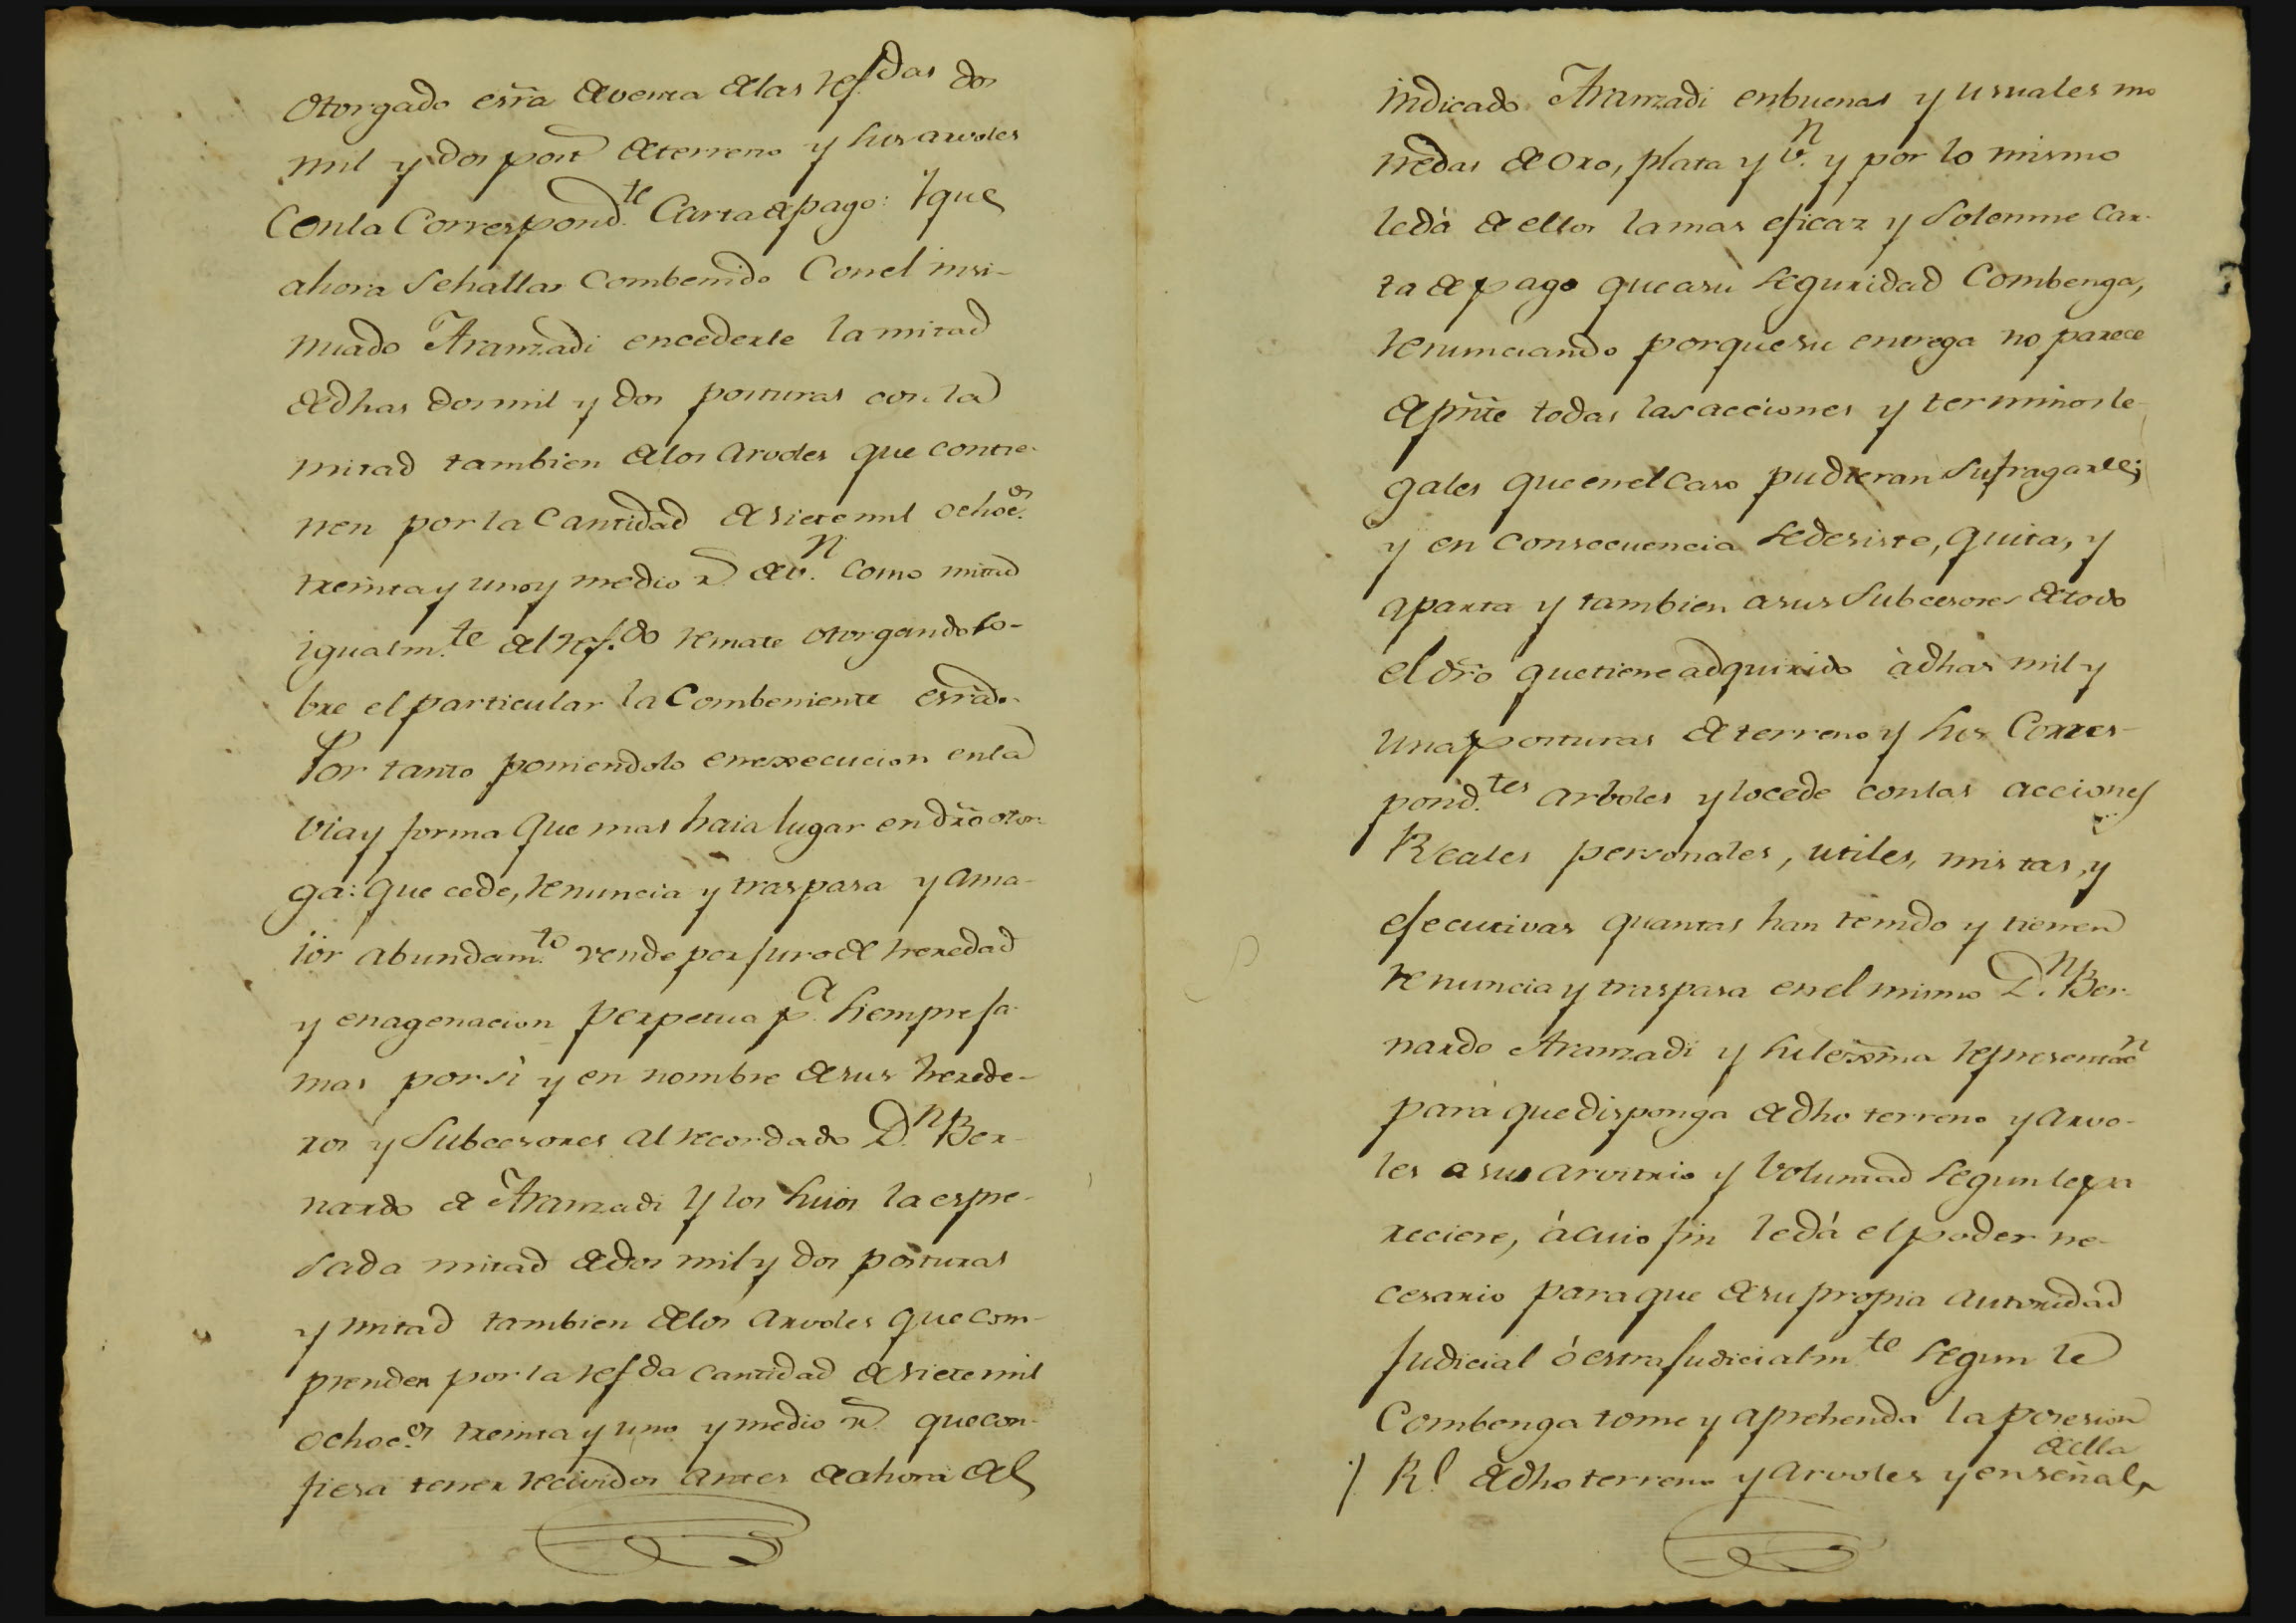 otorgado esr̃a de venta de las refdas dos
mil y dos post̃ de terreno y sus arvoles
con la correspond.te Carta de pago: Y que
ahora se hallas combenido con el insi-
nuado Aranzadi en cederle la mitad
de dhas dos mil y dos posturas con la
mitad tambien de los arvoles que contie-
nen por la cantidad de siete mil ochoc.os
treinta y uno y medio r.s de v.n como mitad
igualm.te del ref.do remate otorgando so-
bre el particular la combeniente esrãdo.
Por tanto poniendolo en execucion en la
via y forma que mas haia lugar en dr̃o otor-
ga: que cede, renuncia y traspasa y a ma-
ior abundam.to vende por juro de heredad
y enagenacion perpetua p.a siempre ja-
mas por sì y en nombre de sus herede-
ros y subcesores al recordado D.n Ber-
nardo de Aranzadi y los suios la espre-
sada mitad de dos mil y dos posturas
y mitad tambien de los arvoles que com-
prenden por la refda cantidad de siete mil
ochoc.os treinta y uno y medio r.s que con-
fiesa tener recividos antes de ahora del
indicado Aranzadi en buenas y usuales mo
nedas de oro, plata y v.n y por lo mismo
le dà de ellos la mas eficaz y solemne car-
ta de pago que a su seguridad combenga,
renunciando porque su entrega no parece
de pñte todas las acciones y terminos le-
gales que en el caso pudieran sufragarle;
y en consecuencia se desiste, quita, y
aparta y tambien a sus subcesores de todo
el dr̃o que tiene adquirido à dhas mil y
una posturas de terreno y sus corres-
pond.tes arboles y lo cede con las acciones
Reales personales, utiles, mistas, y
ejecutivas quantas han tenido y tienen
renuncia y traspasa en el mismo D.n Ber-
nardo Aranzadi y su lexm̃a representac.n
para que disponga de dho terreno y arvo-
les a su arvitrio y voluntad segun le pa
reciere, à cuio fin le dá el poder ne-
cesario para que de su propia autoridad
judicial ó estrajudicialm.te segun le
combenga tome y aprehenda la posesion
R.l de dho terreno y arvoles y en señal de ella